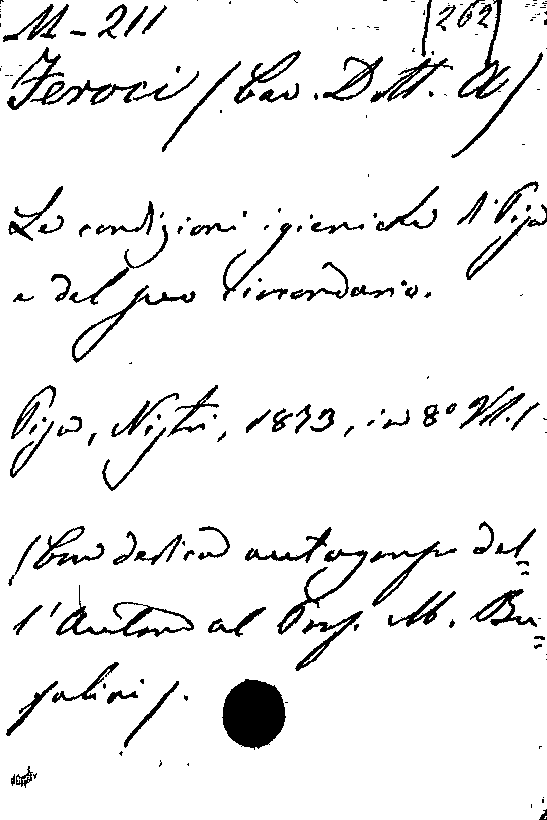 M-211 (262)
Feroci (Cav. Dott. A)
Le condizioni igieniche di Pisa
e del suo circondario.
Pisa, Nistri, 1873, in 8° Vol. 1
(Con dedica autografa del=
l'Autore al Prof. M. Bu=
falini).